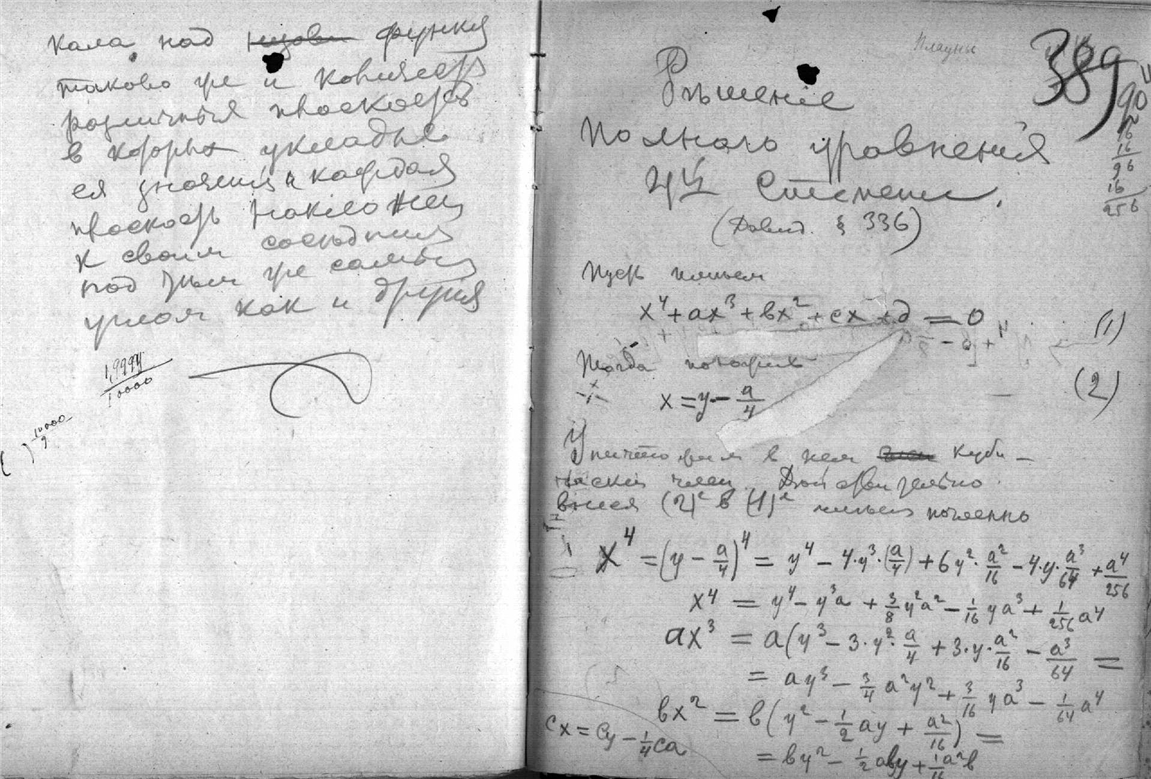 кала над функц
таково же и количеств
различныя плоскостъ
в которых укладыв
ея значенія каждая
плоскость наклонен
к своим соседним
под тем же самым
углом как и другия
1,9994
10000
( )
389
90
16
16
96
16
256
Рѣшеніе
полнаго уравненія
4й Степени.
(Давид. § 336)
Пусть имѣем
x⁴ + ax³ + bx² + cx + d = 0 (1)
Тогда положив
x = y - a/4 (2)
Уничтожим в нем куби-
ческій член. Действительно
внеся (2) в (1) имѣем почленно
x⁴ = (y - a/4)⁴ = y⁴ - 4·y³·(a/4) + 6y²·a²/16 - 4·y·a³/64 + a⁴/256
x⁴ = y⁴ - y³a + 3/8 y²a² - 1/16 ya³ + 1/256 a⁴
ax³ = a(y³ - 3·y²·a/4 + 3·y·a²/16 - a³/64 =
= ay³ - 3/4 a²y² + 3/16 ya³ - 1/64 a⁴
bx² = b(y² - 1/2 ay + a²/16) =
cx = cy - 1/4 ca
= by² - 1/2 aby + 1/16 a²b